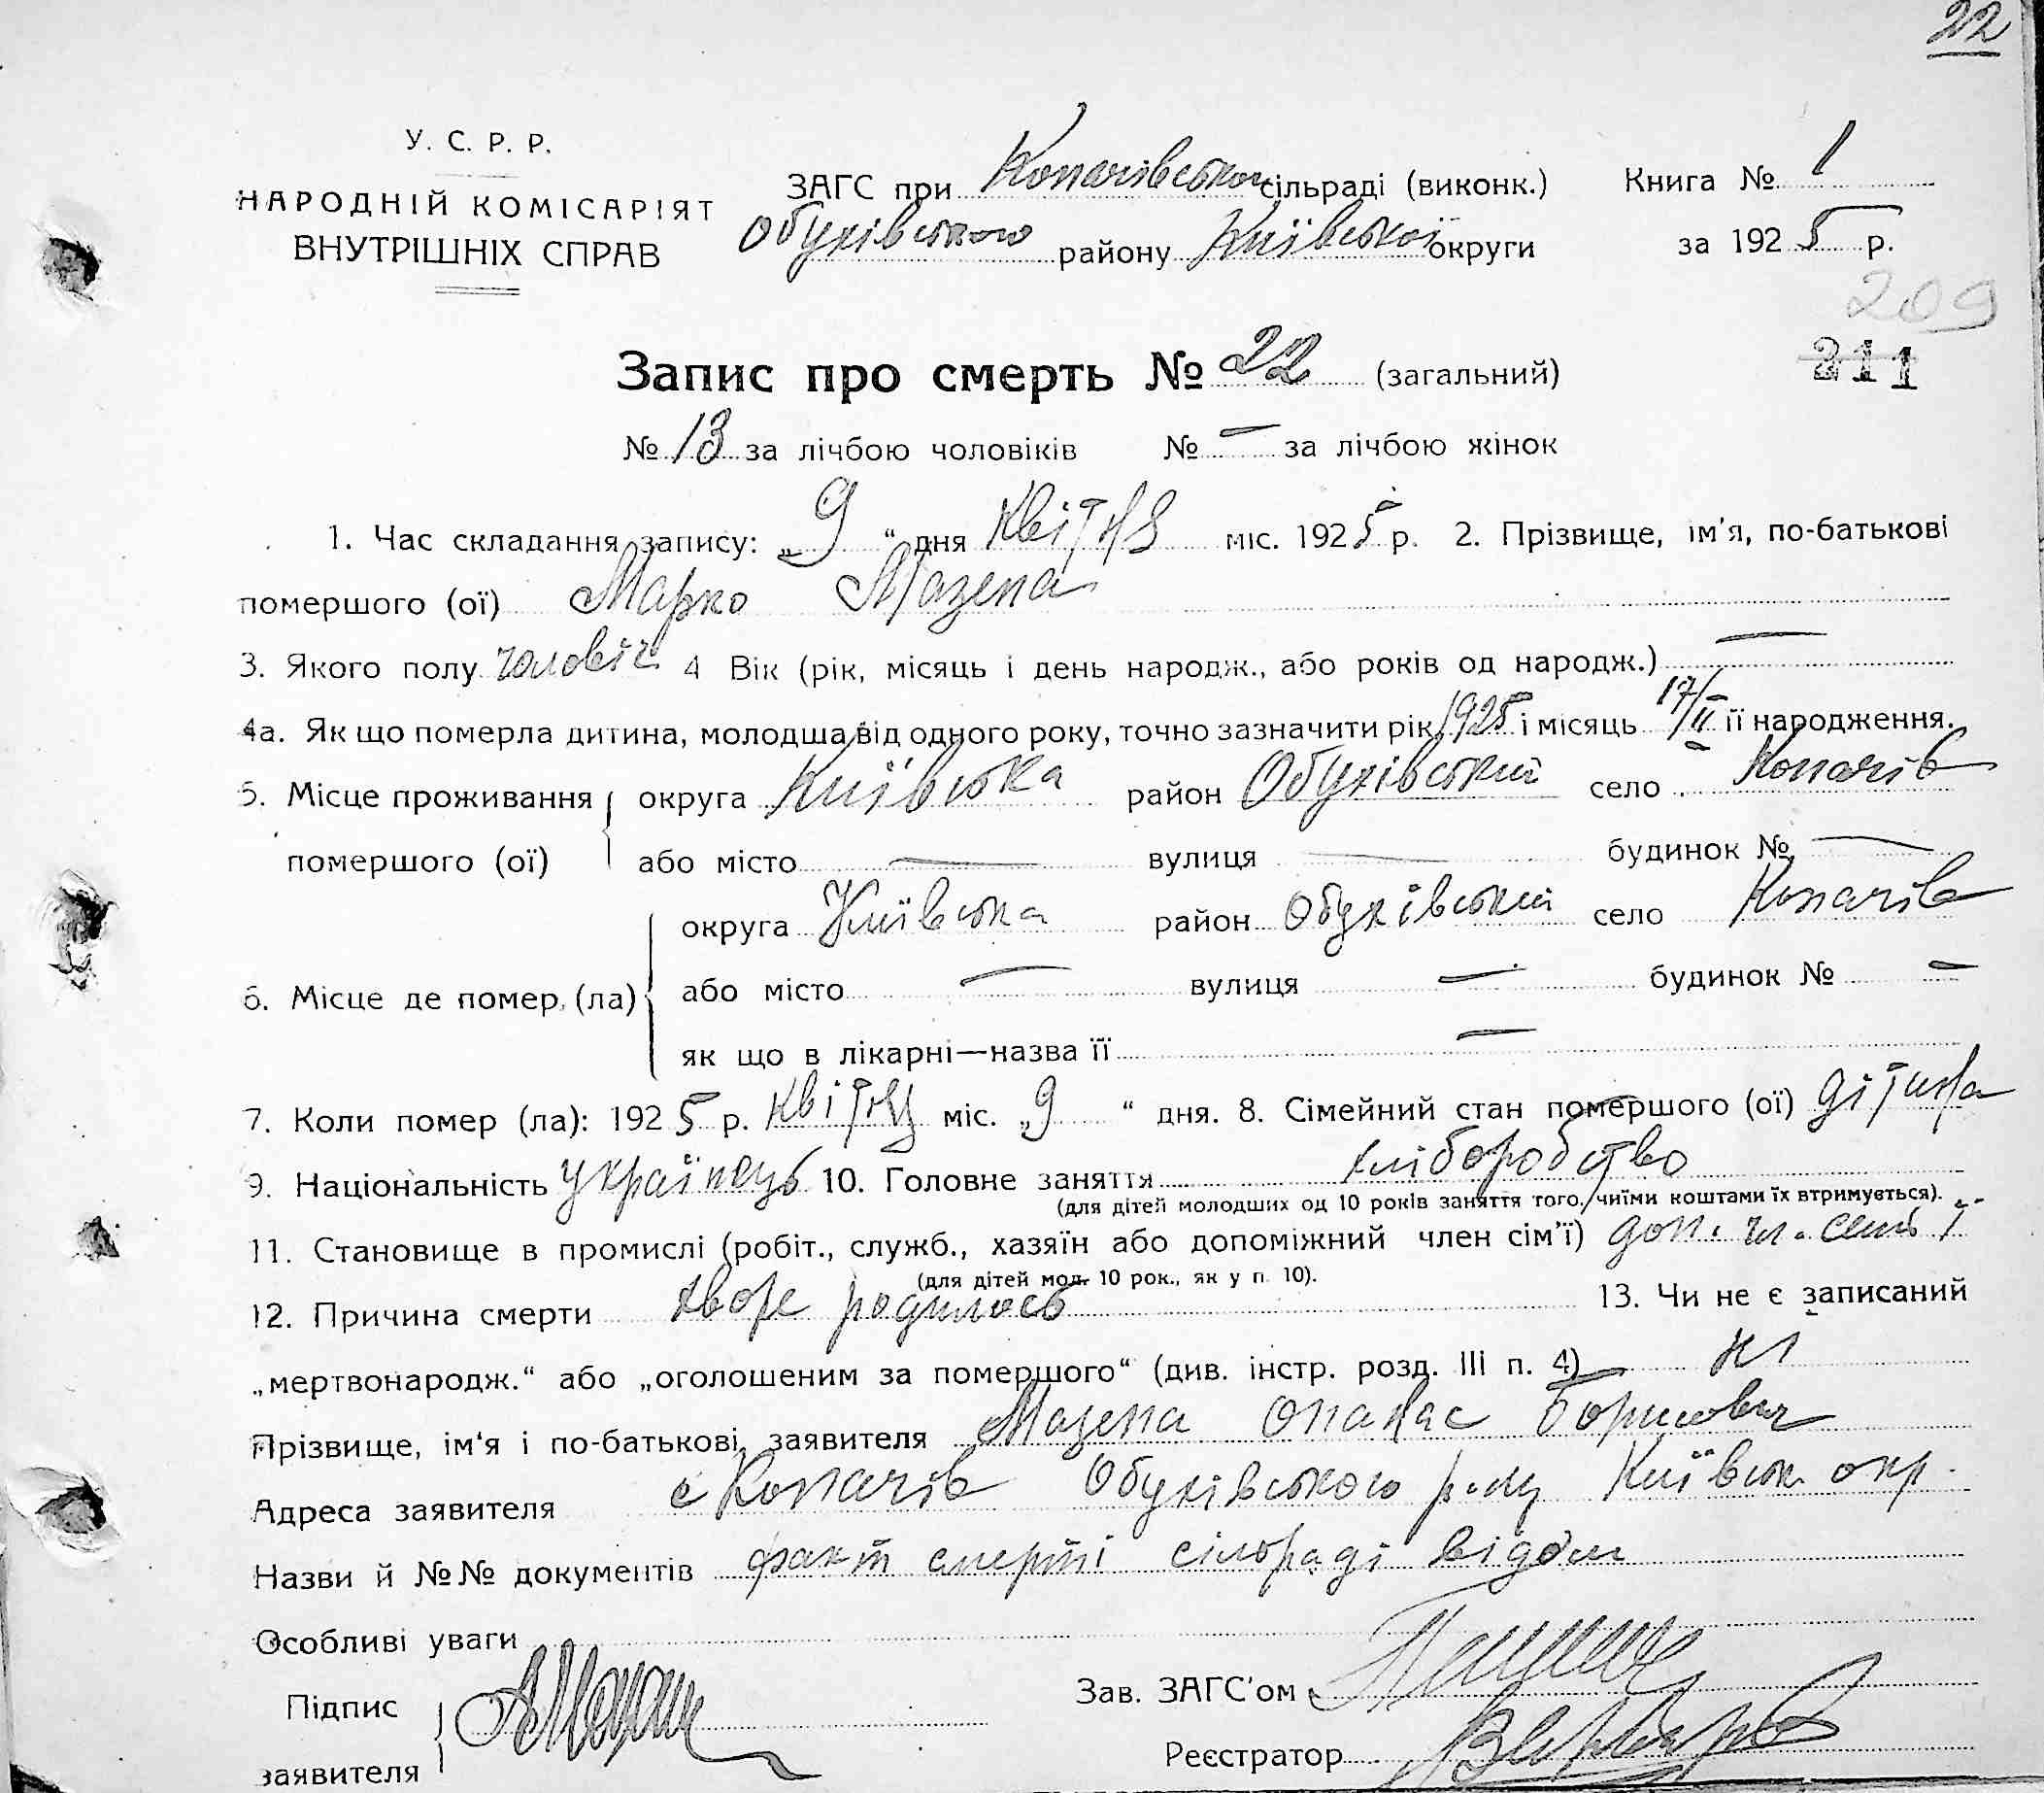 22
У. С. Р. Р.
НАРОДНІЙ КОМІСАРІЯТ
ВНУТРІШНІХ СПРАВ
ЗАГС при Копачівської сільраді (виконк.) Книга № 1
Обухівського району Київської округи за 1925 р.
209
Запис про смерть № 22 (загальний) 211
№ 13 за лічбою чоловіків № — за лічбою жінок
1. Час складання запису: „9“ дня квітня міс. 1925 р. 2. Прізвище, ім'я, по-батькові
помершого (ої) Марко Мазепа
3. Якого полу чоловіч 4 Вік (рік, місяць і день народж., або років од народж.) —
4а. Як що померла дитина, молодша від одного року, точно зазначити рік 1925 і місяць 17/II її народження.
5. Місце проживання округа Київська район Обухівський село Копачів
помершого (ої) або місто — вулиця — будинок № —
округа Київська район Обухівський село Копачів
6. Місце де помер, (ла) або місто — вулиця — будинок № —
як що в лікарні—назва її —
7. Коли помер (ла): 1925 р. квітня міс. „9“ дня. 8. Сімейний стан помершого (ої) дітина
9. Національність українець 10. Головне заняття хліборобство
(для дітей молодших од 10 років заняття того, чиїми коштами їх втримується).
11. Становище в промислі (робіт., служб., хазяїн або допоміжний член сім'ї) доп. чл. семї
(для дітей мол. 10 рок., як у п. 10).
12. Причина смерти хворе родилось 13. Чи не є записаний
„мертвонародж.“ або „оголошеним за помершого“ (див. інстр. розд. III п. 4) — ні
Прізвище, ім'я і по-батькові заявителя Мазепа Опанас Борисович
Адреса заявителя с Копачів Обухівського р-ну Київськ. окр.
Назви й №№ документів факт смерті сільраді відом
Особливі уваги
Підпис
заявителя
Зав. ЗАГС'ом
Реєстратор